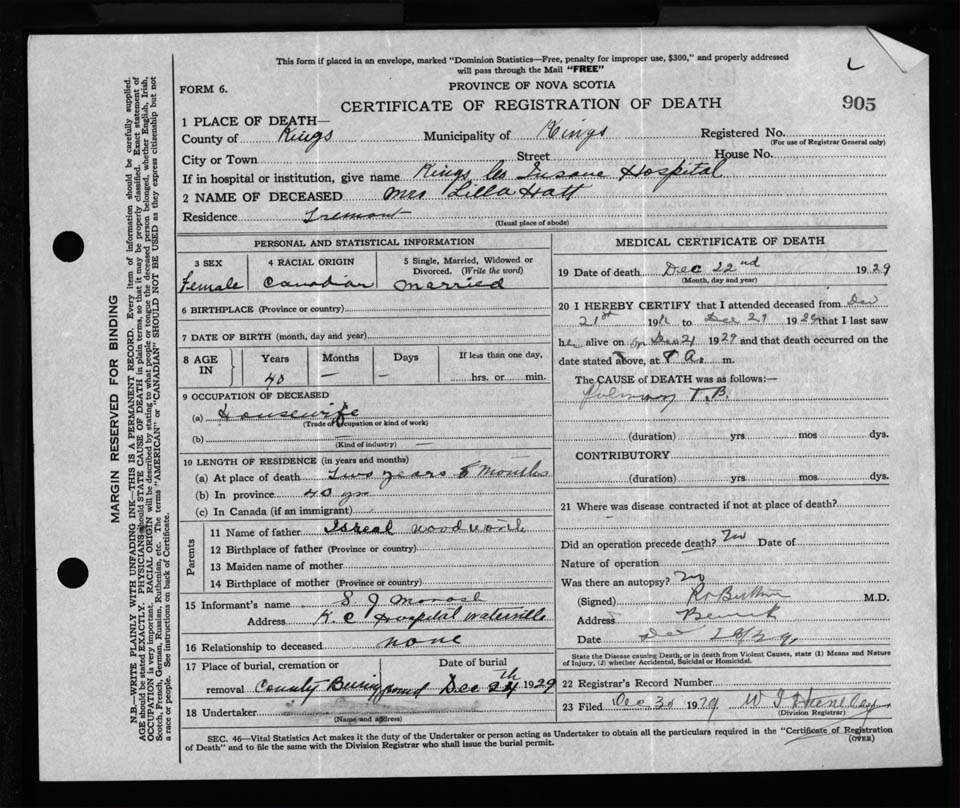 This form if placed in an envelope, marked "Dominion Statistics—Free, penalty for improper use, $300," and properly addressed
will pass through the Mail "FREE"
L
FORM 6.
PROVINCE OF NOVA SCOTIA
CERTIFICATE OF REGISTRATION OF DEATH
905
1 PLACE OF DEATH—
County of Kings Municipality of Kings Registered No.
(For use of Registrar General only)
City or Town Street House No.
If in hospital or institution, give name Kings Co Insane Hospital
2 NAME OF DECEASED Mrs Lilla Hatt
Residence Tremont
(Usual place of abode)
PERSONAL AND STATISTICAL INFORMATION
3 SEX 4 RACIAL ORIGIN 5 Single, Married, Widowed or Divorced. (Write the word)
Female Canadian Married
6 BIRTHPLACE (Province or country)
7 DATE OF BIRTH (month, day and year)
8 AGE IN Years Months Days If less than one day,
40 — — hrs. or min.
9 OCCUPATION OF DECEASED
(a) Housewife
(Trade of occupation or kind of work)
(b)
(Kind of industry) —
10 LENGTH OF RESIDENCE (in years and months)
(a) At place of death Two years 6 Months
(b) In province 40 yrs
(c) In Canada (if an immigrant)
Parents
11 Name of father Isreal Woodworth
12 Birthplace of father (Province or country)
13 Maiden name of mother
14 Birthplace of mother (Province or country)
15 Informant's name S J
Address K. C Hospital Waterville
16 Relationship to deceased none
17 Place of burial, cremation or Date of burial
removal County Burring ground Dec 24th 1929
18 Undertaker
(Name and address)
MEDICAL CERTIFICATE OF DEATH
19 Date of death Dec 22nd 1929
(Month, day and year)
20 I HEREBY CERTIFY that I attended deceased from Dec
21st 19 to Dec 1929 that I last saw
her alive on Dec 21 1929 and that death occurred on the
date stated above, at A. m.
The CAUSE of DEATH was as follows:—
Pulmonary T.B.
(duration) yrs mos dys.
CONTRIBUTORY
(duration) yrs mos dys.
21 Where was disease contracted if not at place of death?
Did an operation precede death? No Date of
Nature of operation
Was there an autopsy? No
(Signed) M.D.
Address Berwick
Date Dec 28/29
State the Disease causing Death, or in death from Violent Causes, state (1) Means and Nature
of Injury, (2) whether Accidental, Suicidal or Homicidal.
22 Registrar's Record Number
23 Filed Dec 30 1929 W J
(Division Registrar)
SEC. 46—Vital Statistics Act makes it the duty of the Undertaker or person acting as Undertaker to obtain all the particulars required in the "Certificate of Registration
of Death" and to file the same with the Division Registrar who shall issue the burial permit.
(OVER)
MARGIN RESERVED FOR BINDING
N.B.—WRITE PLAINLY WITH UNFADING INK—THIS IS A PERMANENT RECORD. Every item of information should be carefully supplied.
AGE should be stated EXACTLY. PHYSICIANS should STATE CAUSE OF DEATH in plain terms, so that it may be properly classified. Exact statement of
OCCUPATION is very important. RACIAL ORIGIN will be described by stating to what people or tongue the deceased person belonged, whether English, Irish,
Scotch, French, German, Russian, Ruthenian, etc. The terms "AMERICAN" or "CANADIAN" SHOULD NOT BE USED as they express citizenship but not
a race or people. See instructions on back of Certificate.